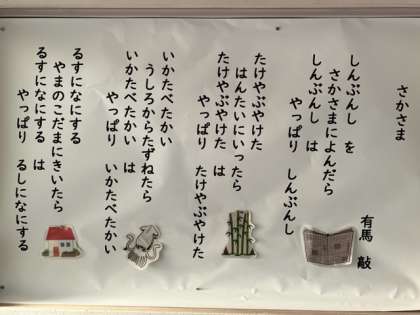 さかさま
有馬 敲
しんぶんし を
さかさまによんだら
しんぶんし は
やっぱり しんぶんし
たけやぶやけた
はんたいにいったら
たけやぶやけた は
やっぱり たけやぶやけた
いかたべたかい
うしろからたずねたら
いかたべたかい は
やっぱり いかたべたかい
るすになにする
やまのこだまにきいたら
るすになにする は
やっぱり るしになにする